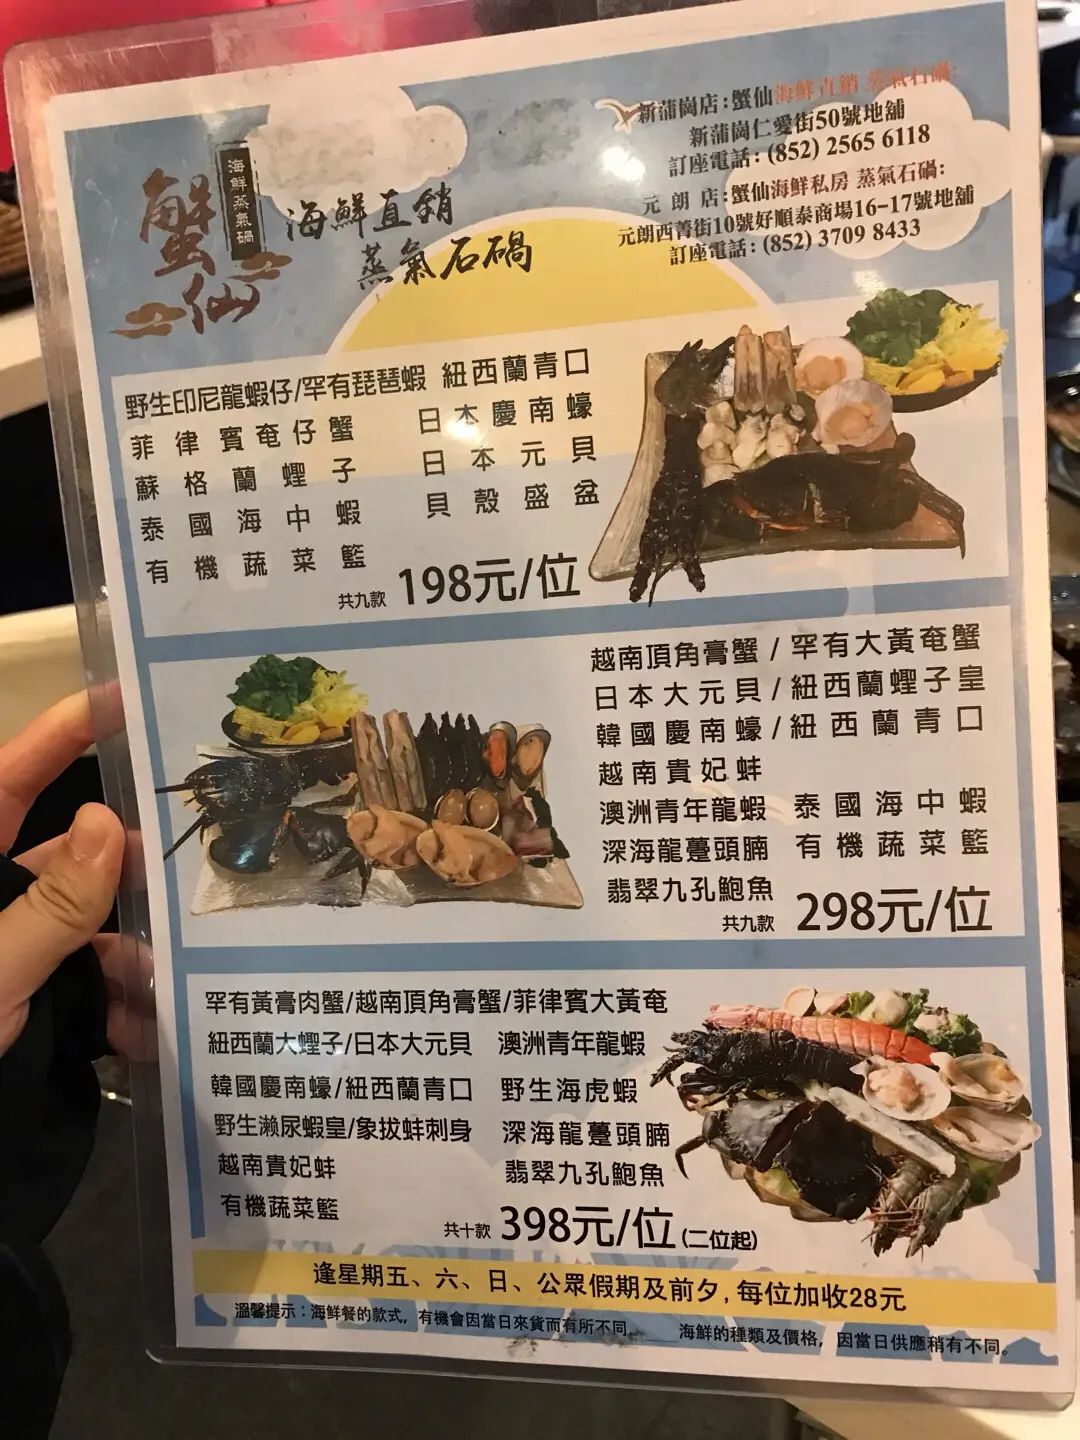 蟹仙
海鮮蒸氣鍋
海鮮直銷
蒸氣石鍋
新蒲崗店:蟹仙海鮮直銷 蒸氣石鍋:
新蒲崗仁愛街50號地舖
訂座電話:(852) 2565 6118
元朗店:蟹仙海鮮私房 蒸氣石鍋:
元朗西菁街10號好順泰商場16-17號地舖
訂座電話:(852) 3709 8433
野生印尼龍蝦仔/罕有琵琶蝦 紐西蘭青口
菲律賓奄仔蟹 日本慶南蠔
蘇格蘭蟶子 日本元貝
泰國海中蝦 貝殼盛盆
有機蔬菜籃
共九款 198元/位
越南頂角膏蟹/罕有大黃奄蟹
日本大元貝/紐西蘭蟶子皇
韓國慶南蠔/紐西蘭青口
越南貴妃蚌
澳洲青年龍蝦 泰國海中蝦
深海龍躉頭腩 有機蔬菜籃
翡翠九孔鮑魚
共九款 298元/位
罕有黃膏肉蟹/越南頂角膏蟹/菲律賓大黃奄
紐西蘭大蟶子/日本大元貝 澳洲青年龍蝦
韓國慶南蠔/紐西蘭青口 野生海虎蝦
野生瀨尿蝦皇/象拔蚌刺身 深海龍躉頭腩
越南貴妃蚌 翡翠九孔鮑魚
有機蔬菜籃
共十款 398元/位(二位起)
逢星期五、六、日、公眾假期及前夕,每位加收28元
溫馨提示:海鮮餐的款式,有機會因當日來貨而有所不同。 海鮮的種類及價格,因當日供應稍有不同。